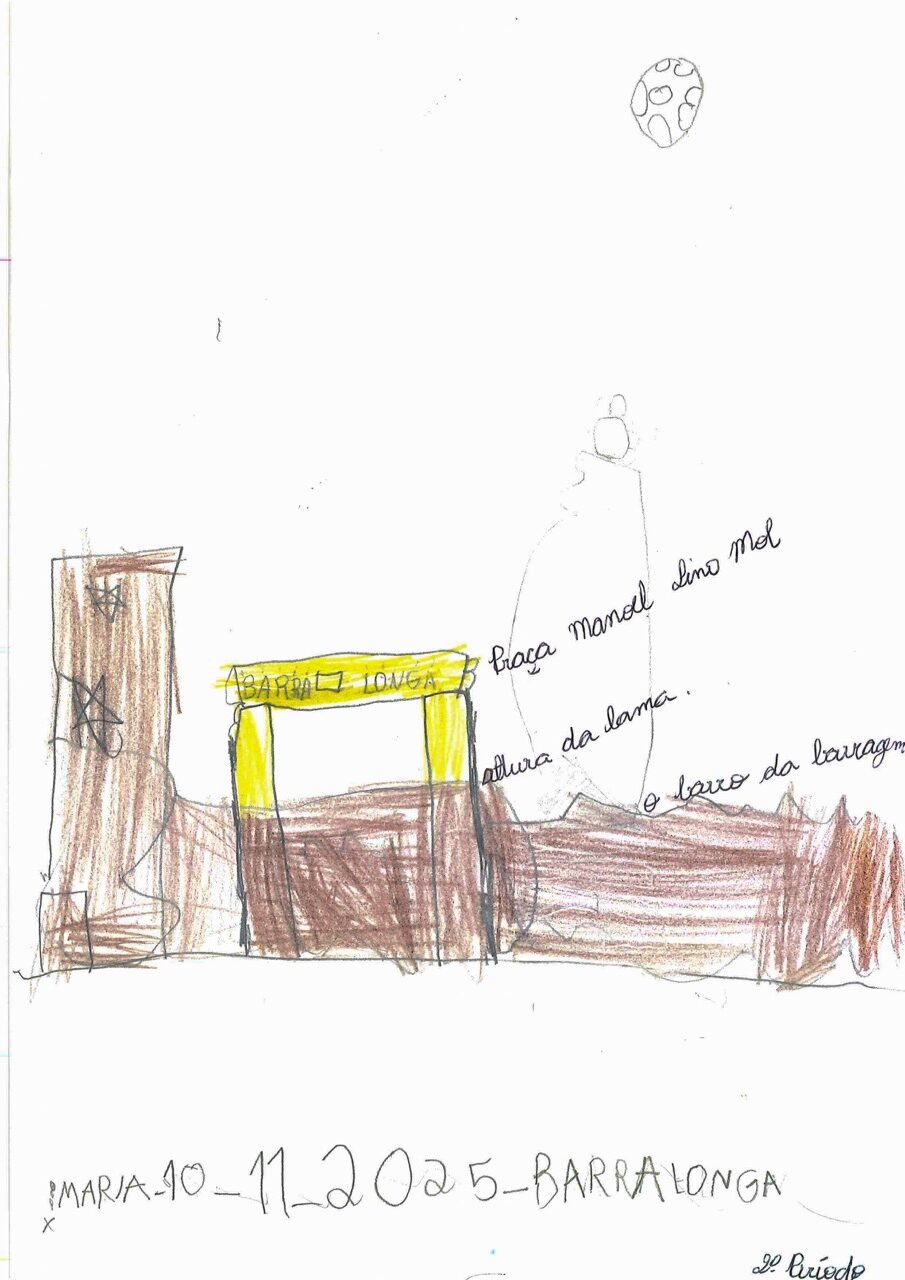 Praça Manoel Lino Mol
BARRA LONGA
altura da lama.
o barro da barragem
MARIA-10-11-2025-BARRALONGA
X
2º Período